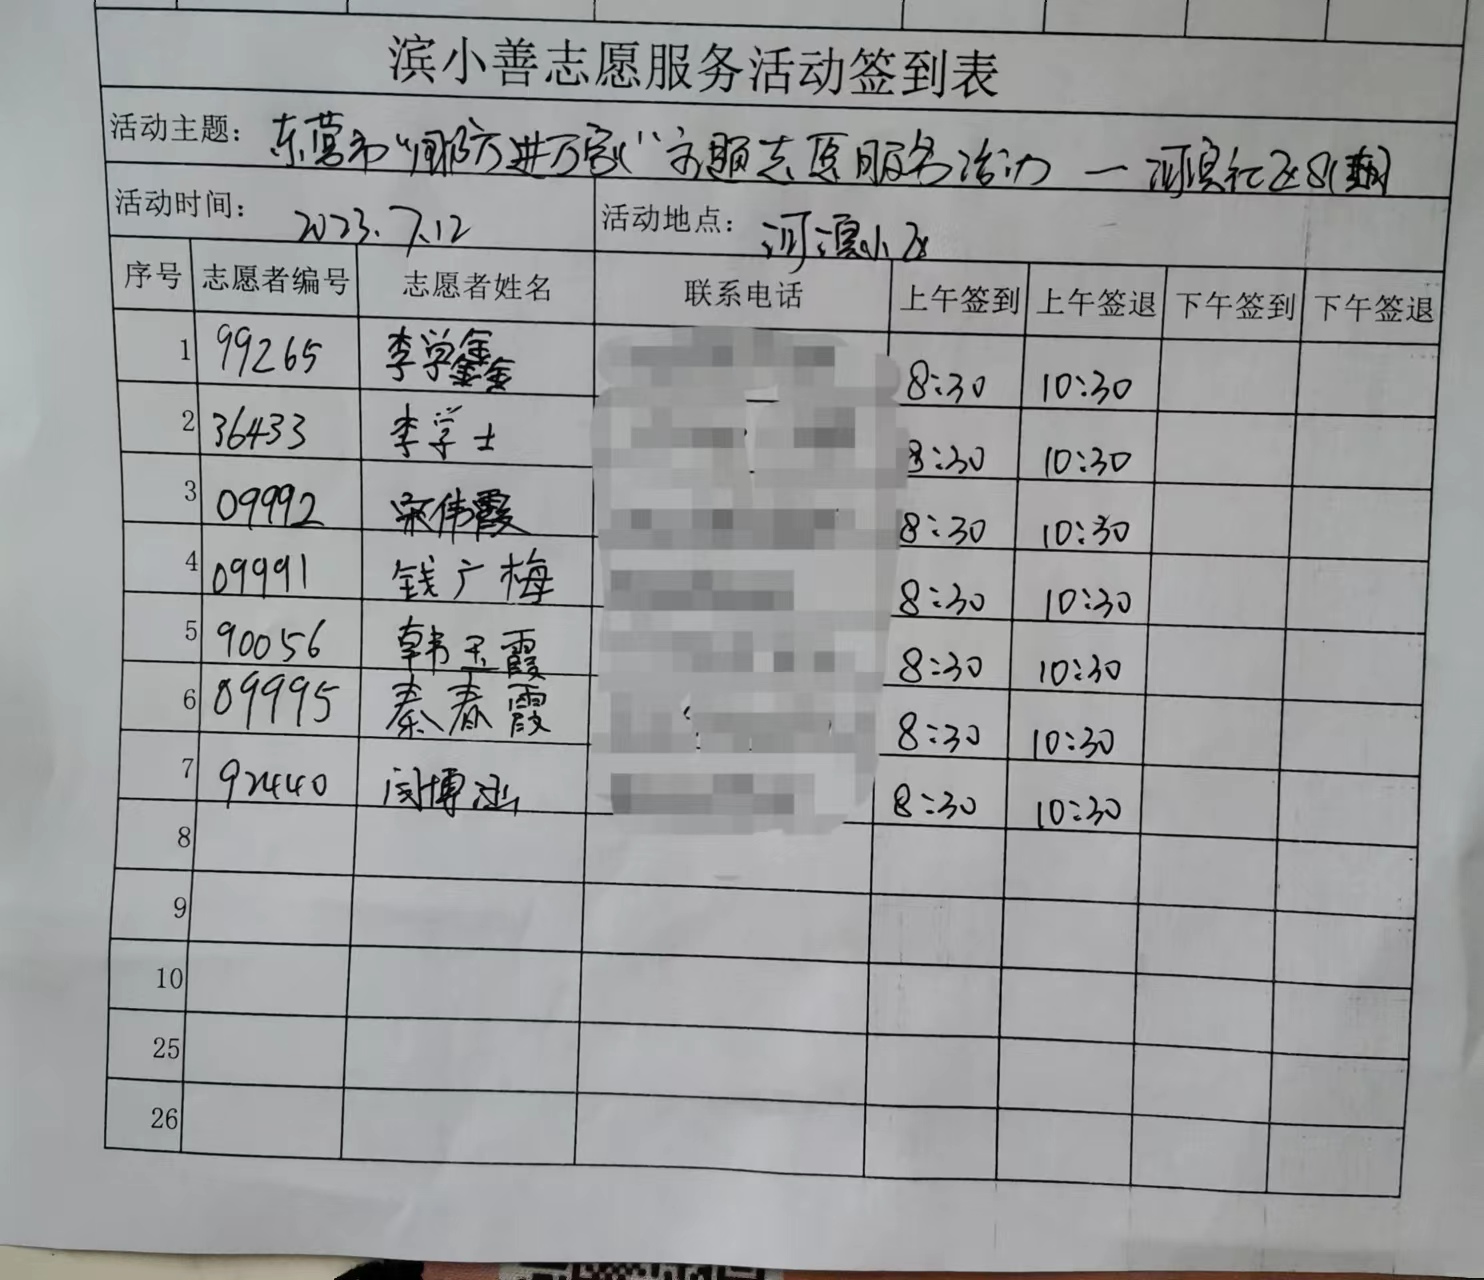 滨小善志愿服务活动签到表
活动主题: 东营市"消防进万家"主题志愿服务活动 — 河滨社区8
活动时间: 2023.7.12 活动地点: 河滨小区
序号 志愿者编号 志愿者姓名 联系电话 上午签到 上午签退 下午签到 下午签退
1 99265 李学鑫 8:30 10:30
2 36433 李学士 8:30 10:30
3 09992 宋伟霞 8:30 10:30
4 09991 钱广梅 8:30 10:30
5 90056 韩玉霞 8:30 10:30
6 09995 秦春霞 8:30 10:30
7 92440 闫博涵 8:30 10:30
8
9
10
25
26